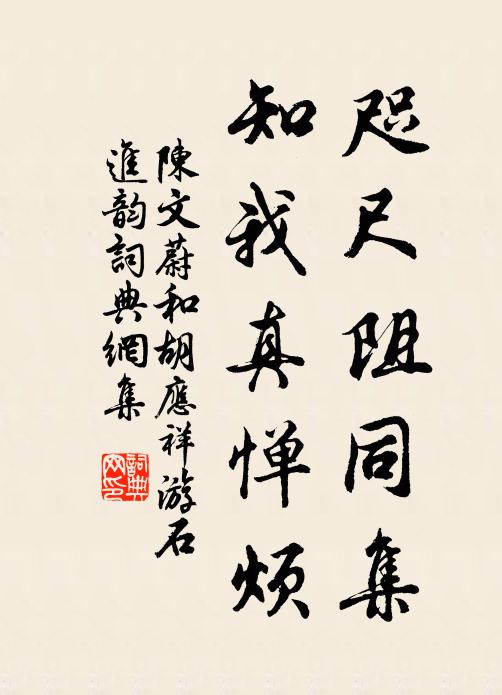 咫尺阻同集
知我真惮烦
陳文蔚和胡應祥游石
進韵詞典網集
詞典網印